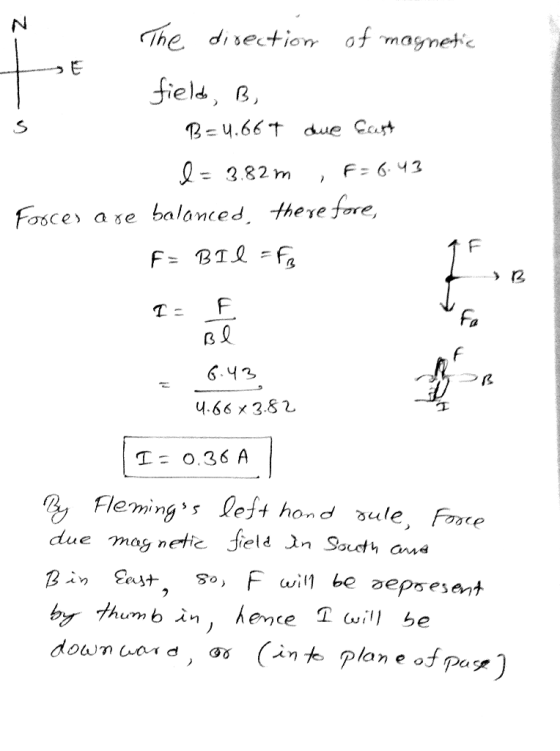 N
E
S
The direction of magnetic
field, B,
B = 4.66 T due East
l = 3.82 m , F = 6.43
Forces are balanced, therefore,
F = BIl = FB
I = F / Bl
= 6.43 / 4.66 × 3.82
I = 0.36 A
F
B
FB
F
B
I
By Fleming's left hand rule, Force
due magnetic field In South and
B in East, so, F will be represent
by thumb in, hence I will be
downward, or (into plane of page)